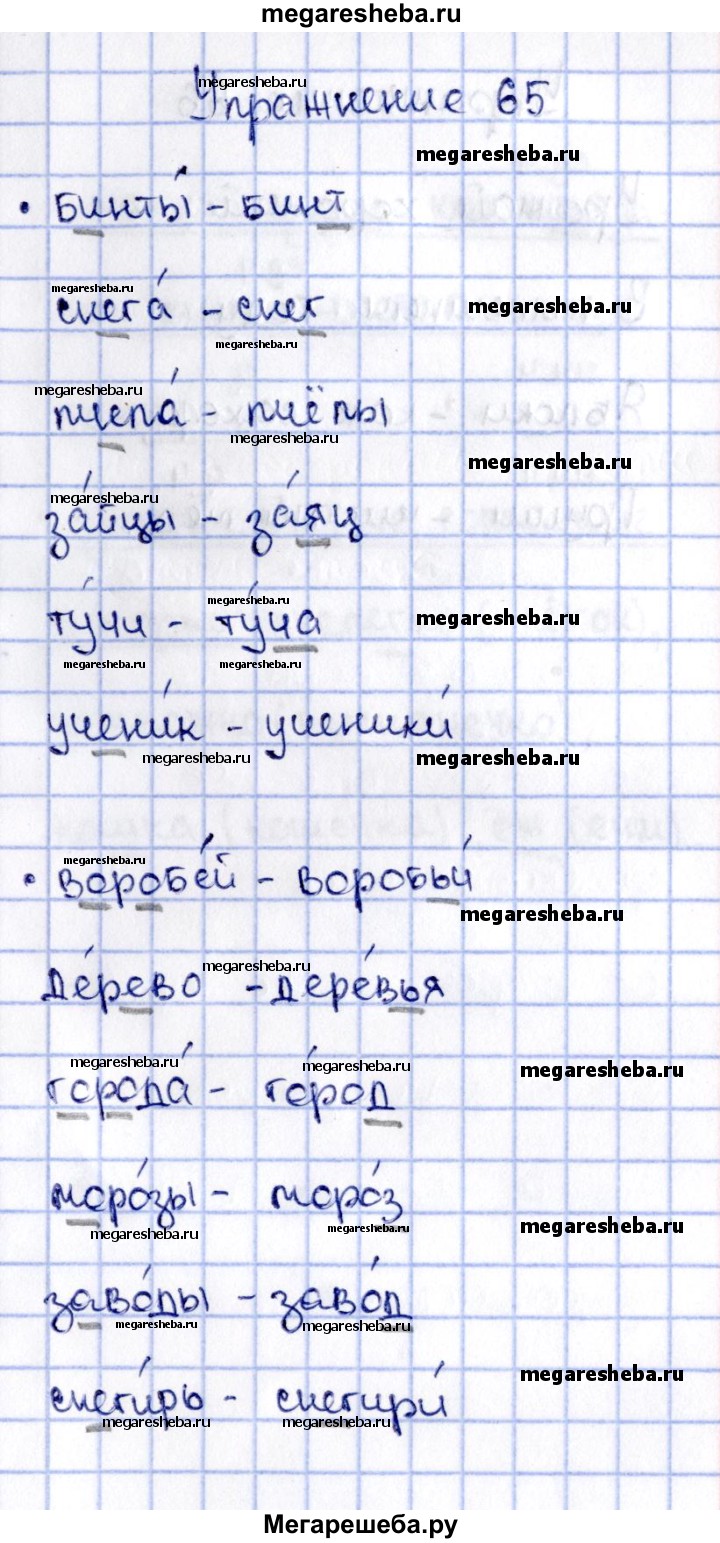 megaresheba.ru
megaresheba.ru
Упражнение 65
megaresheba.ru
• Бинты́ – бинт
megaresheba.ru
снега́ – снег
megaresheba.ru
megaresheba.ru
megaresheba.ru
пчела́ – пчёлы
megaresheba.ru
megaresheba.ru
megaresheba.ru
за́йцы – за́яц
megaresheba.ru
ту́чи – ту́ча
megaresheba.ru
megaresheba.ru
megaresheba.ru
учени́к – ученики́
megaresheba.ru
megaresheba.ru
megaresheba.ru
• Воробе́й – воробьи́
megaresheba.ru
megaresheba.ru
де́рево – дере́вья
megaresheba.ru
megaresheba.ru
megaresheba.ru
города́ – го́род
моро́зы – моро́з
megaresheba.ru
megaresheba.ru
megaresheba.ru
заво́ды – заво́д
megaresheba.ru
megaresheba.ru
megaresheba.ru
снеги́рь – снегири́
megaresheba.ru
megaresheba.ru
Мегарешеба.ру